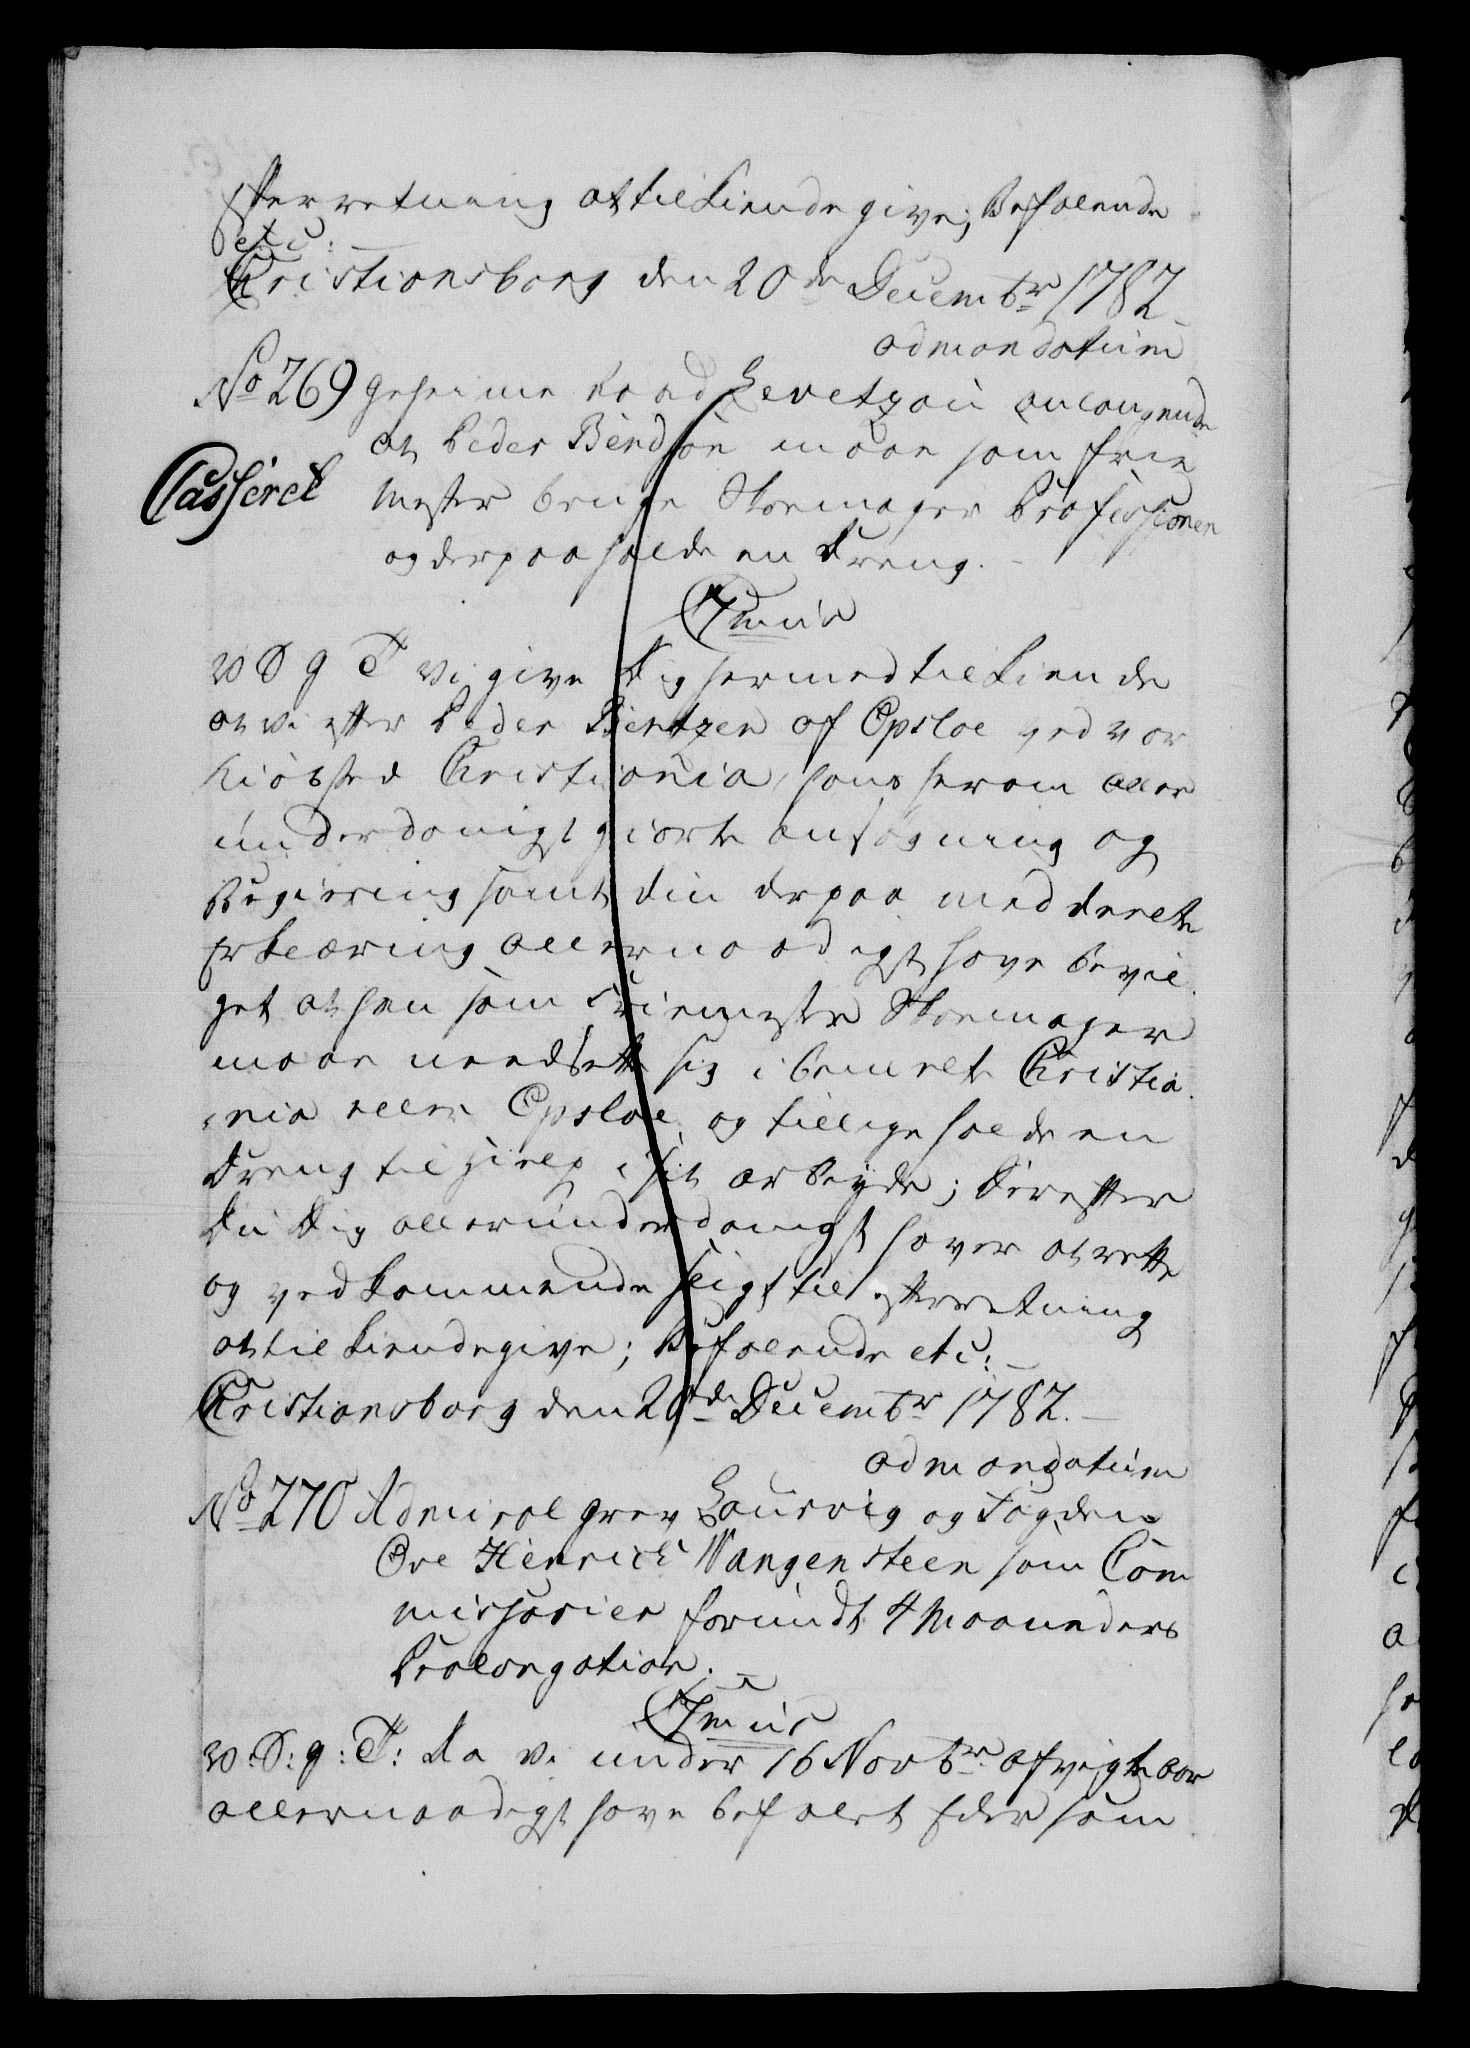 Efterretning at tilkiende give; Befalende
etc:
Christiansborg den 20de Decembr 1782
ad mandatum
No 269 Geheime Raad Levetzau anlangende
at Peder Bendsøn maae som frie
Casseret
Mester bruge Skoemager Professionen
og derpaa holde en Dreng.
C 7mus
W S G T Vi give Dig hermed tilkiende
at vi efter Peder Bentzen af Opsloe ved vor
Kiøbsted Christiania, hans herom aller
underdanigst giorte ansøgning og
Begiering samt din derpaa meddeelte
Erklæring allernaadigst have bevil
get at han som Friemester Skoemager
maae needsette sig i bemelte Christia
nia eller Opsloe og tillige holde en
Dreng til Hielp i sit arbeyde; Derefter
Du Dig allerunderdanigst haver at rette
og vedkommende sligt til efterretning
at tilkiendegive; Befalende etc:
Christiansborg den 20de Decembr 1782.
ad mandatum
No 270 Admiral Grev Laurvig og Fogden
Ove Henrich Wangensteen som Com
missarier forundt 4 Maaneders
Prolongation.
C 7mus
W: S: G: T: Da Vi under 16 Novbr: afvigte aar
allernaadigst have befalet Eder som